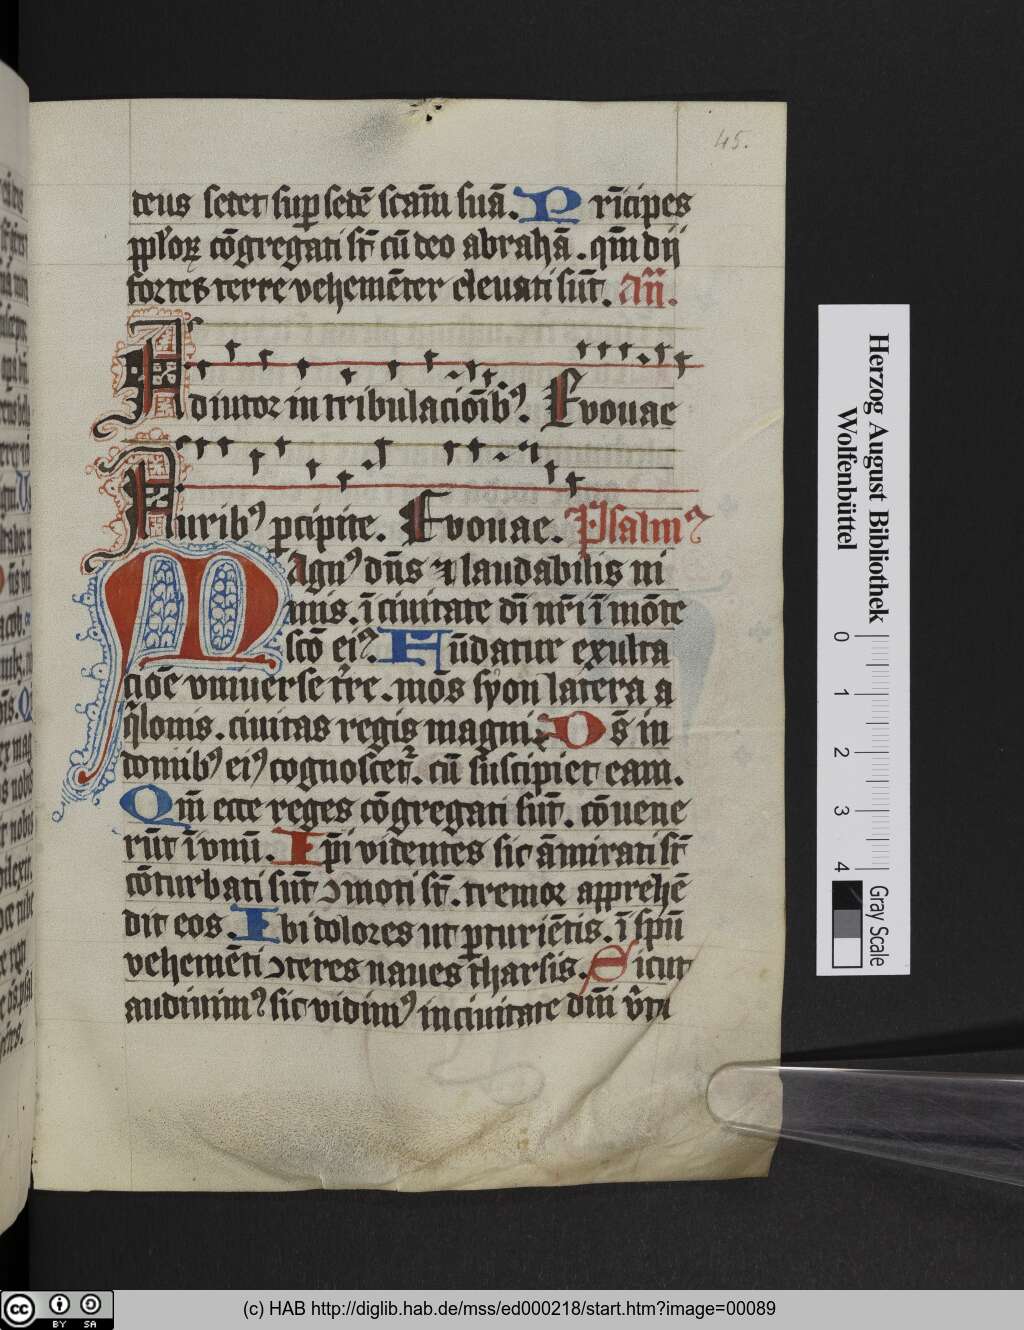 45.
deus sedet sup sedē scām suā. Prīcipes
pplorꝝ cōgregati st̄ cū deo abrahā. qm̄ dij
fortes terre vehemēter eleuati sūt. An̄.
Adiutor in tribulacioīb⁹. Evouae
Aurib⁹ ꝑcipite. Evouae. Psalm⁹
Magn⁹ dn̄s ⁊ laudabilis ni
mis. ī ciuitate dī nr̄i ī mōte
scō ei⁹. Fūdatur exulta
ciōe vniuerse tr̄e. mōs syon latera a
q̄lonis. ciuitas regis magni. Ds̄ in
domib⁹ ei⁹ cognoscet̄. cū suscipiet eam.
Qm̄ ecce reges cōgregati sūt. cōuene
rūt ī vnū. Ip̄i videntes sic āmirati st̄
cōturbati sūt ↄmoti st̄. tremor apprehē
dit eos. Ibi dolores ut ꝑturiētis. ī spū
vehemēti ↄteres naues tharsis. Sicut
audiuim⁹ sic vidim⁹ in ciuitate dm̄i v̄tu
Herzog August Bibliothek
Wolfenbüttel
0 1 2 3 4
Gray Scale
cc BY SA
(c) HAB http://diglib.hab.de/mss/ed000218/start.htm?image=00089